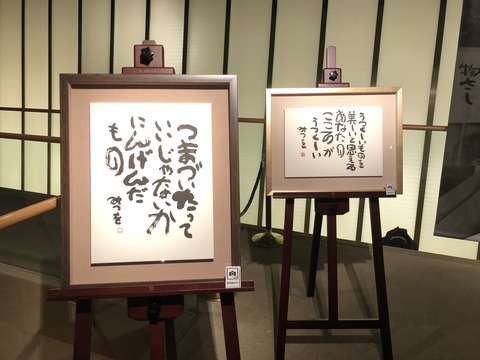 つまづいたって
いいじゃないか
にんげんだ
もの
みつを
うつくしいものを
美しいと思える
あなたの
こころが
うつくしい
みつを
物さし